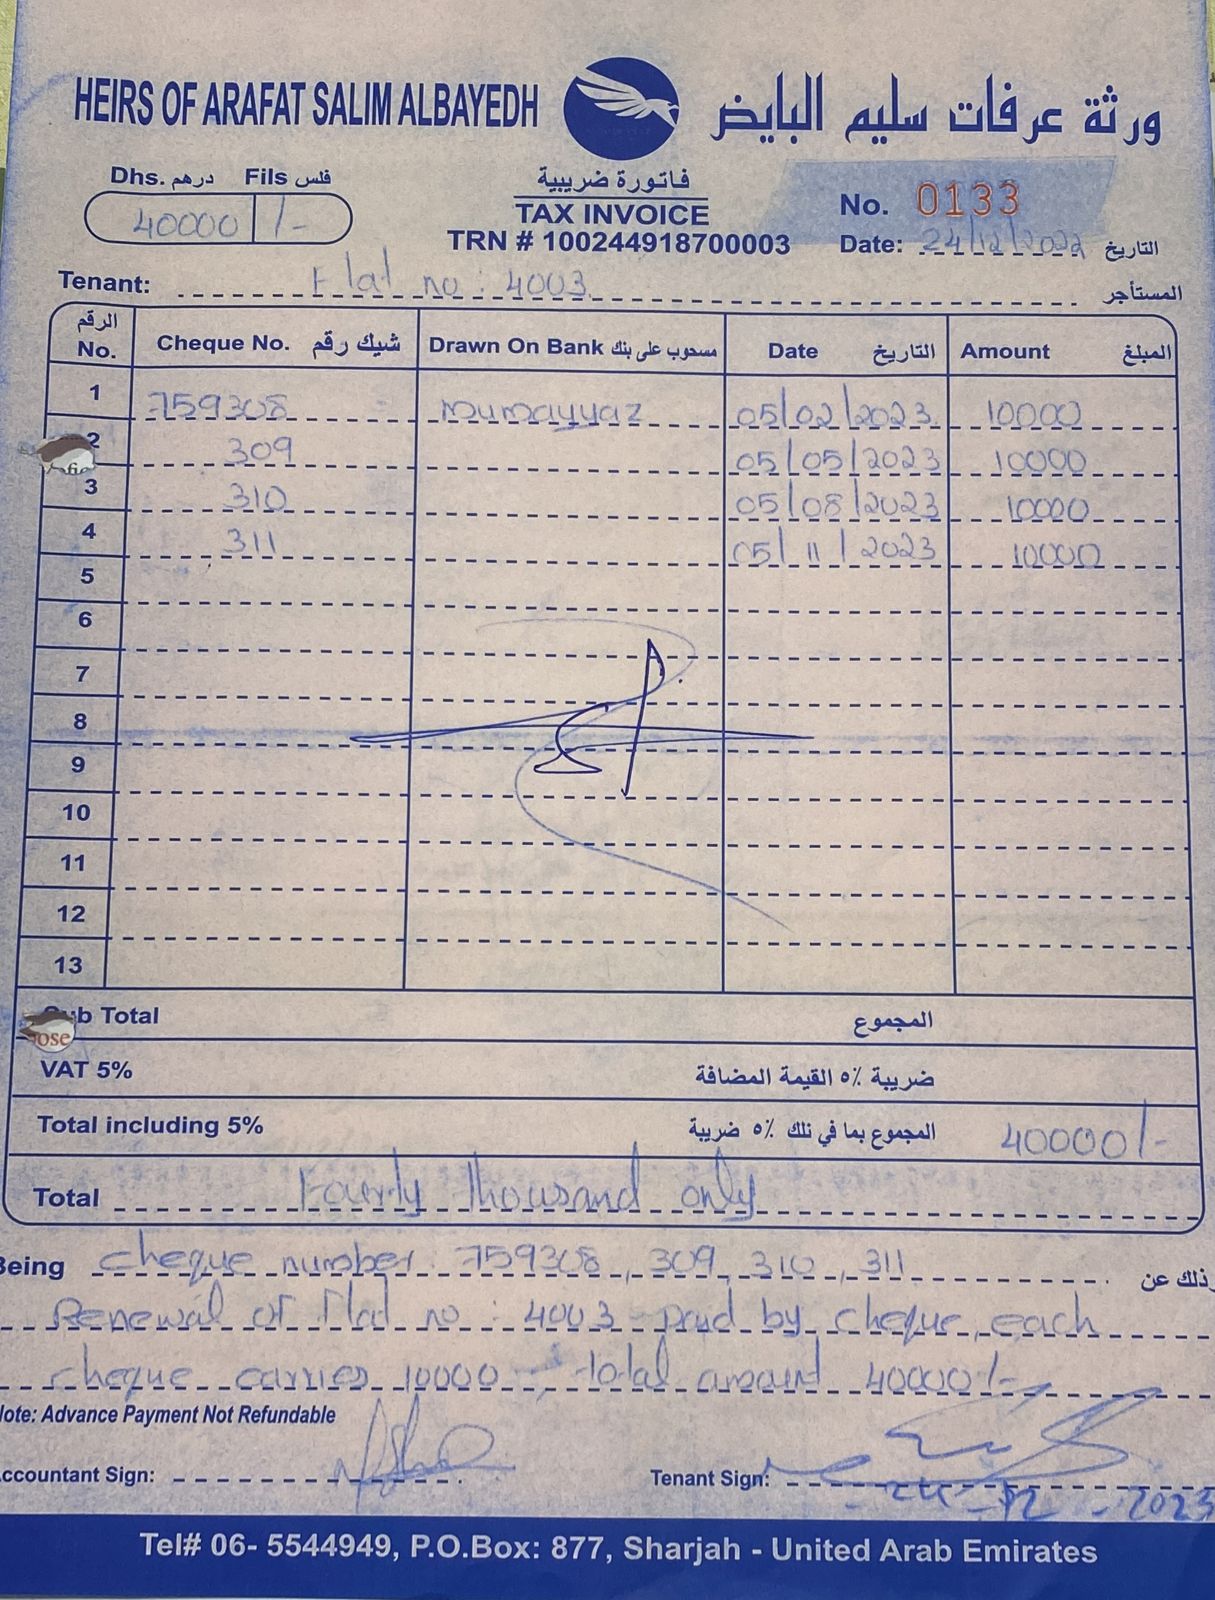 HEIRS OF ARAFAT SALIM ALBAYEDH ورثة عرفات سليم البايض
Dhs. درهم Fils فلس
40000 /-
فاتورة ضريبية
TAX INVOICE
TRN # 100244918700003
No. 0133
Date: 24/12/2022 التاريخ
Tenant: Flat no : 4003 المستأجر
الرقم No. Cheque No. شيك رقم Drawn On Bank مسحوب على بنك Date التاريخ Amount المبلغ
1 759308 mumayyaz 05/02/2023 10000
2 309 05/05/2023 10000
3 310 05/08/2023 10000
4 311 05/11/2023 10000
5
6
7
8
9
10
11
12
13
Sub Total المجموع
VAT 5% ضريبة ٥٪ القيمة المضافة
Total including 5% المجموع بما في تلك ٥٪ ضريبة 40000/-
Total Fourty thousand only
Being cheque number 759308, 309, 310, 311 وذلك عن
Renewal of Flat no : 4003 paid by cheque, each
cheque carries 10000 total amount 40000/-
Note: Advance Payment Not Refundable
Accountant Sign: Tenant Sign:
24-12-2023
Tel# 06- 5544949, P.O.Box: 877, Sharjah - United Arab Emirates